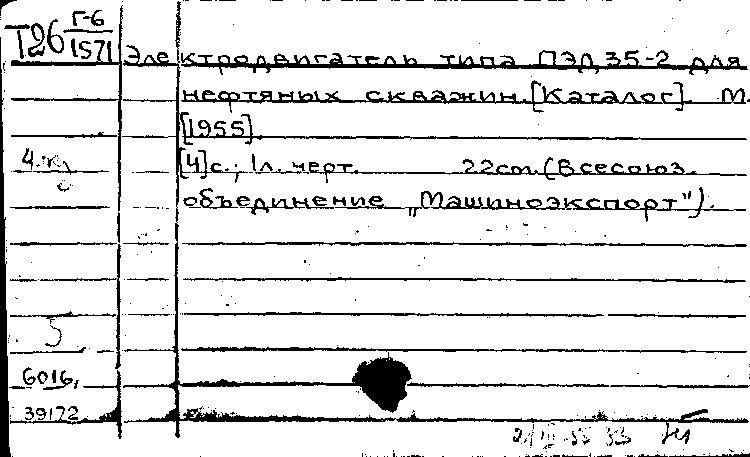 Т26 Г-6/1571
Электродвигатель типа ПЭД 35-2 для
нефтяных скважин. [Каталог]. М.
[1955].
[4]с.; 1л. черт. 22cm. (Всесоюз.
объединение „Машиноэкспорт").
5
6016,
39172